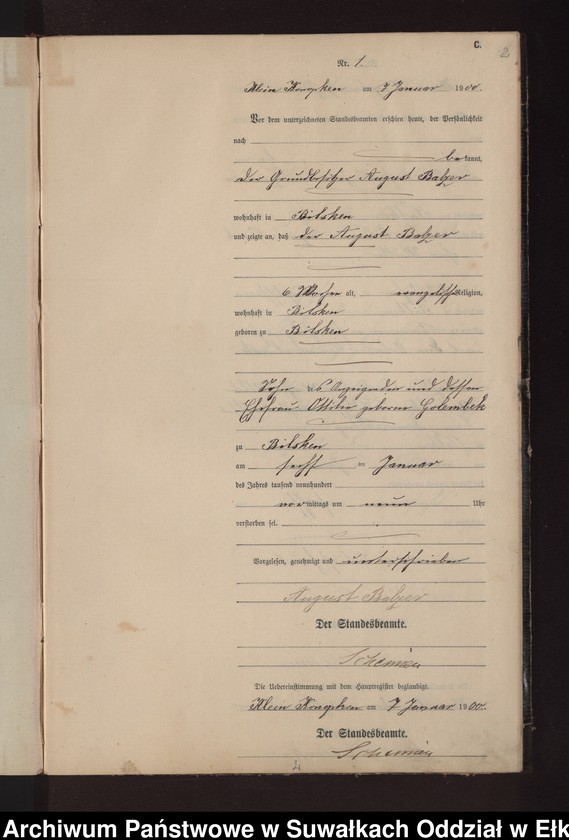 C.
2
Nr. 1.
Klein am 7 Januar 1900.
Vor dem unterzeichneten Standesbeamten erschien heute, der Persönlichkeit
nach
bekannt,
der Grundbesitzer August Balzer
wohnhaft in Bilsken
und zeigte an, daß der August Balzer
6 Wochen alt, evangelischer Religion,
wohnhaft in Bilsken
geboren zu Bilsken
Sohn des Anzeigenden und dessen
Ehefrau Ottilie geborene Golembek
zu Bilsken
am sechs ten Januar
des Jahres tausend neunhundert
vormittags um neun Uhr
verstorben sei.
Vorgelesen, genehmigt und unterschrieben
August Balzer
Der Standesbeamte.
Die Uebereinstimmung mit dem Hauptregister beglaubigt.
Klein am 7 Januar 1900.
Der Standesbeamte.
Archiwum Państwowe w Suwałkach Oddział w Ełk